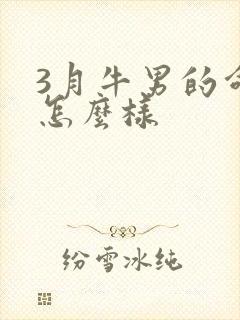 3月牛男的命
怎麼樣
纷雪冰纯